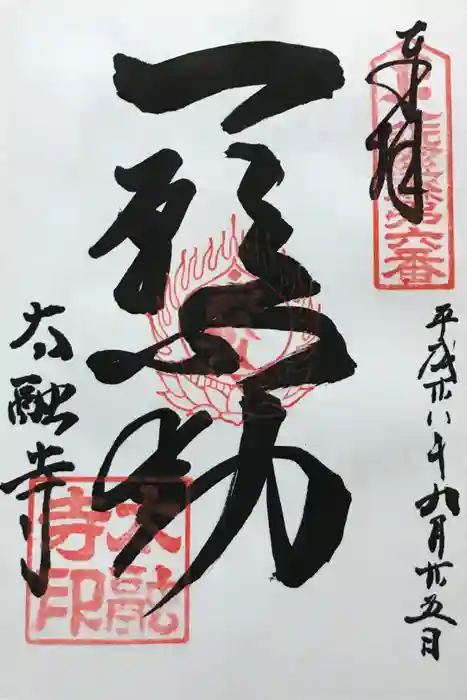 奉拝
第六番
平成廿八年九月廿五日
一願不動
太融寺
太融
寺印